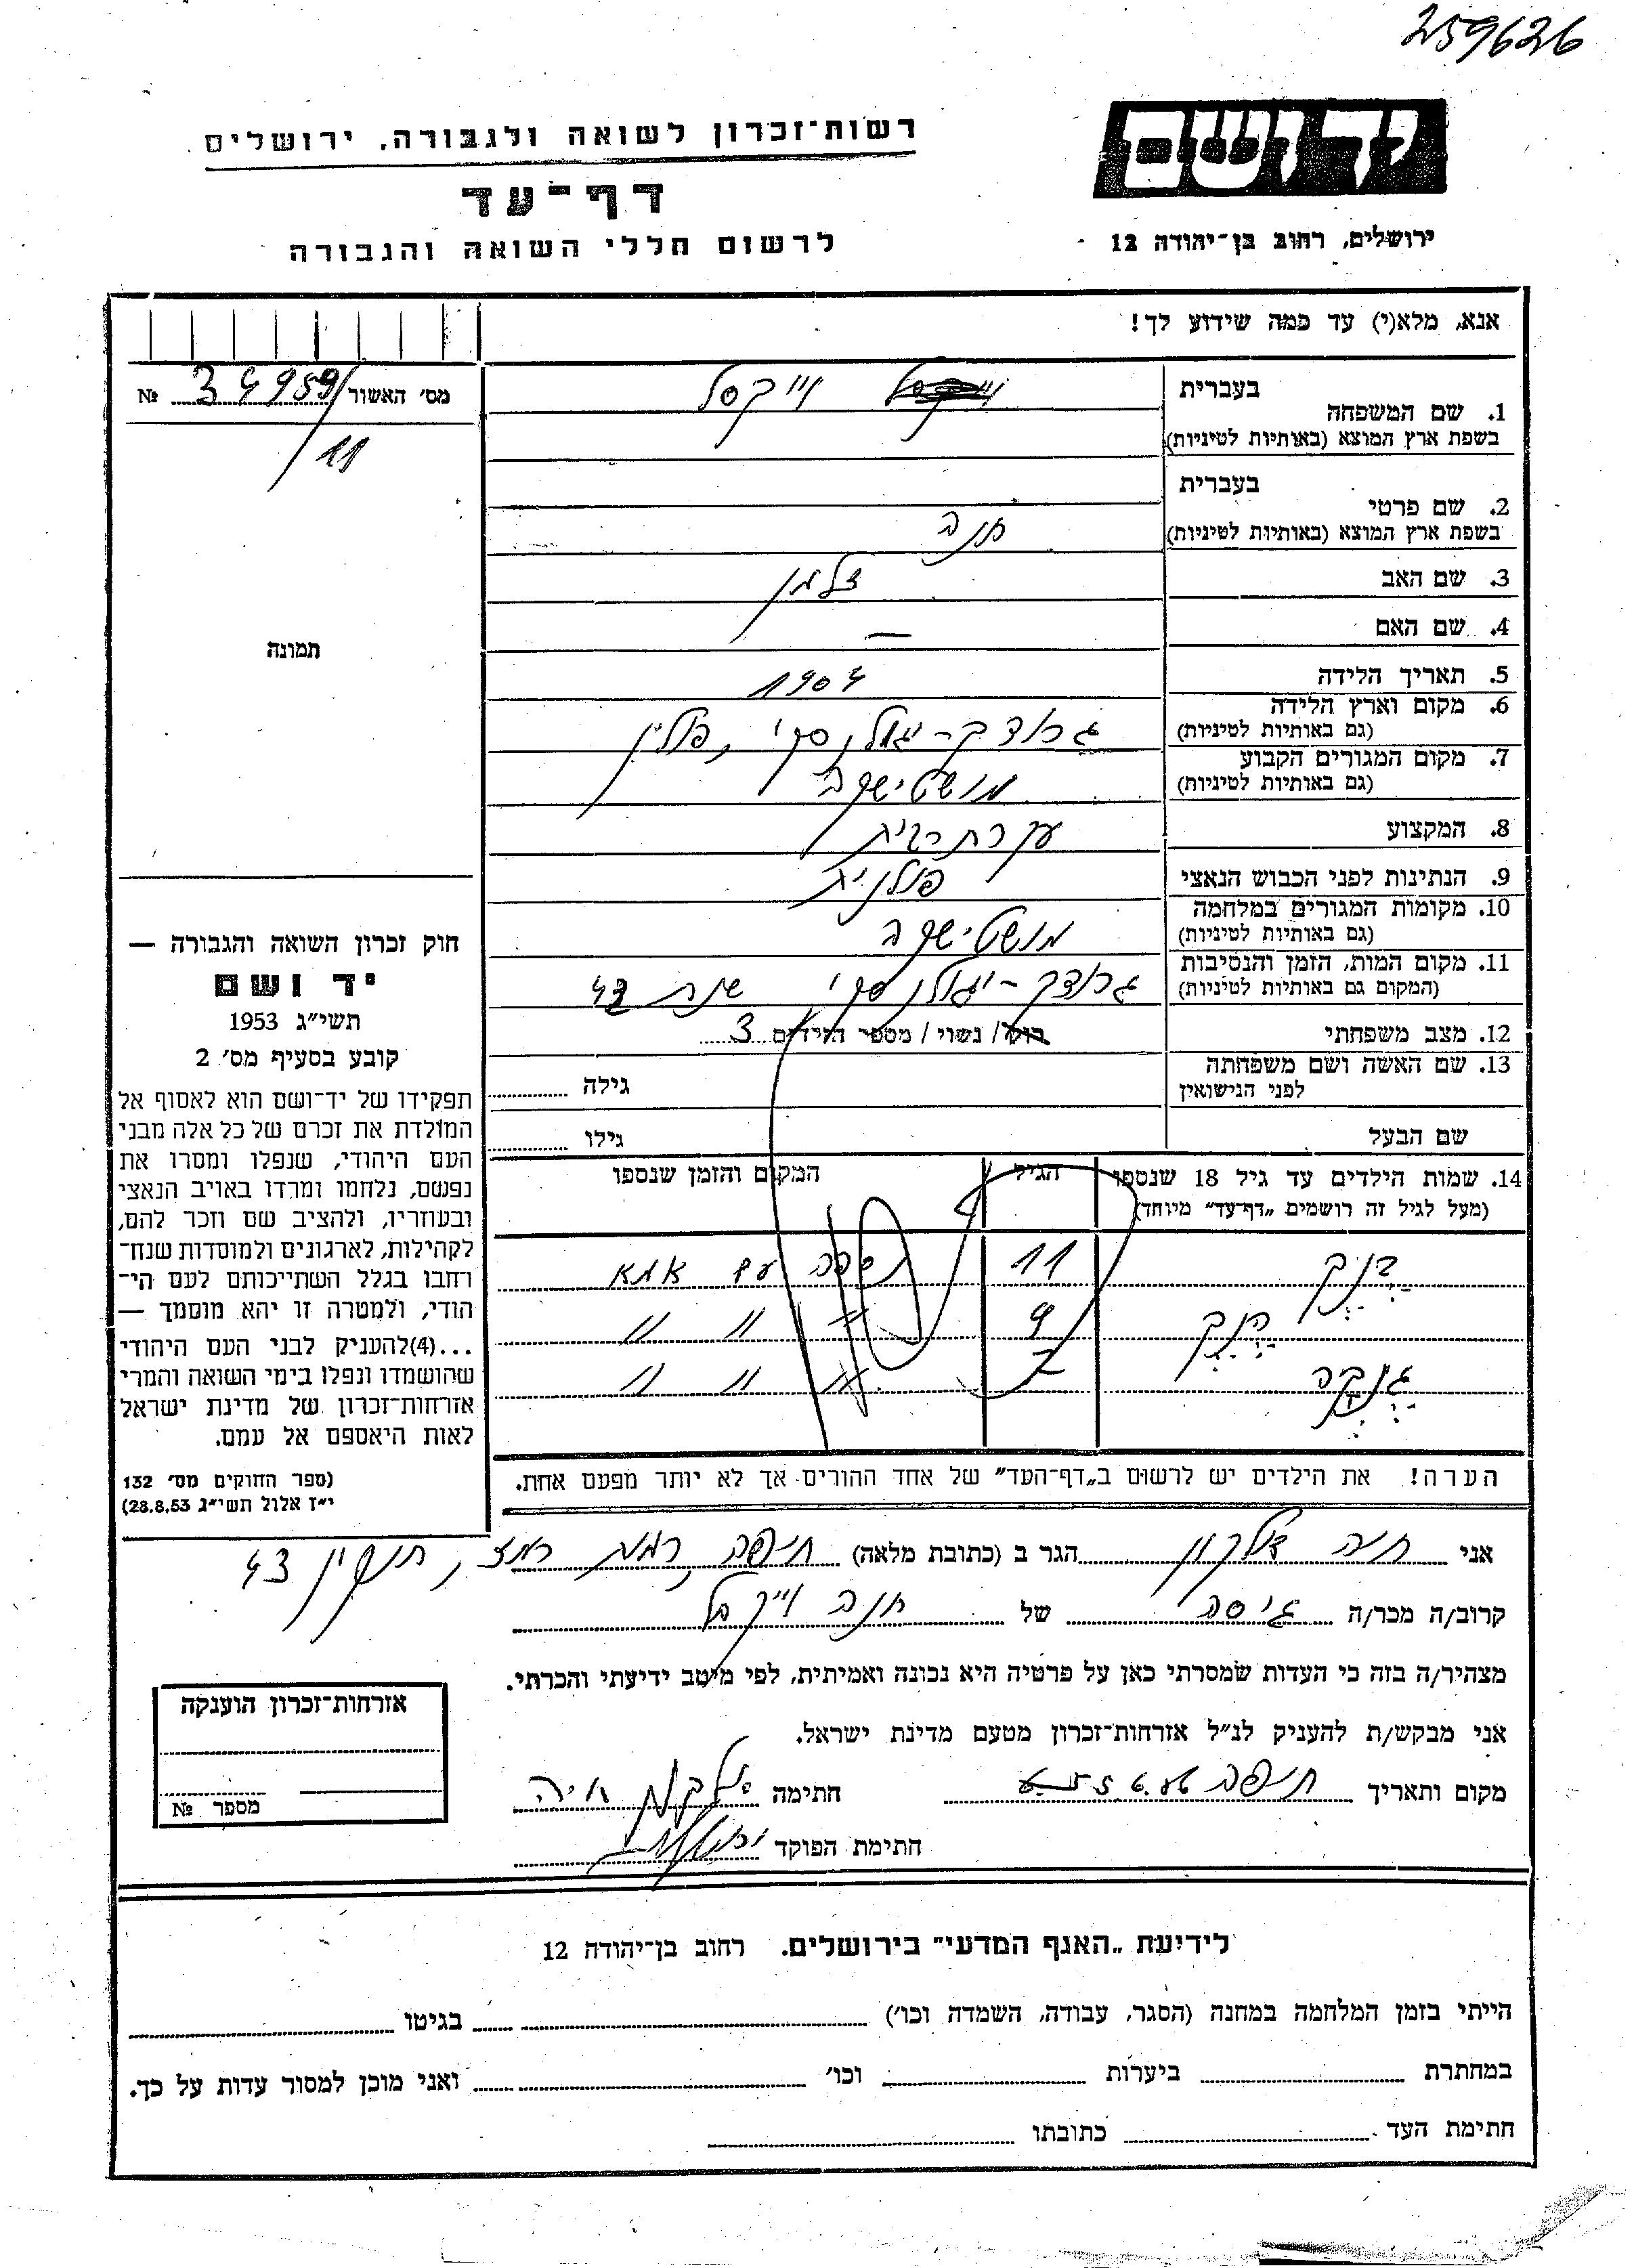 259626
יד ושם
ירושלים, רחוב בן־יהודה 12
רשות־זכרון לשואה ולגבורה, ירושלים
דף־עד
לרשום חללי השואה והגבורה
אנא, מלא(י) עד כמה שידוע לך!
מס׳ האשור 34959 №
/11
תמונה
1. שם המשפחה בעברית וייקסל
בשפת ארץ המוצא (באותיות לטיניות)
2. שם פרטי בעברית
בשפת ארץ המוצא (באותיות לטיניות) חנה
3. שם האב זלמן
4. שם האם —
5. תאריך הלידה 1904
6. מקום וארץ הלידה
(גם באותיות לטיניות) גרודק-יגולנסקי, פולין
7. מקום המגורים הקבוע
(גם באותיות לטיניות) מושטישקה
8. המקצוע עקרת בית
9. הנתינות לפני הכבוש הנאצי פולנית
10. מקומות המגורים במלחמה
(גם באותיות לטיניות) מושטישקה
11. מקום המות, הזמן והנסיבות
(המקום גם באותיות לטיניות) גרודק-יגולנסקי שנת 43
12. מצב משפחתי רוק/ נשוי / מספר הילדים 3
13. שם האשה ושם משפחתה
לפני הנישואין גילה
שם הבעל גילו
14. שמות הילדים עד גיל 18 שנספו הגיל המקום והזמן שנספו
(מעל לגיל זה רושמים „דף־עד” מיוחד)
11 נספה עם אמא
9 " " "
7 " " "
הערה! את הילדים יש לרשום ב„דף־העד” של אחד ההורים אך לא יותר מפעם אחת.
חוק זכרון השואה והגבורה —
יד ושם
תשי״ג 1953
קובע בסעיף מס׳ 2
תפקידו של יד־ושם הוא לאסוף אל
המולדת את זכרם של כל אלה מבני
העם היהודי, שנפלו ומסרו את
נפשם, נלחמו ומרדו באויב הנאצי
ובעוזריו, ולהציב שם וזכר להם,
לקהילות, לארגונים ולמוסדות שנח־
רבו בגלל השתייכותם לעם הי־
הודי, ולמטרה זו יהא מוסמך —
...(4)להעניק לבני העם היהודי
שהושמדו ונפלו בימי השואה והמרי
אזרחות־זכרון של מדינת ישראל
לאות היאספם אל עמם.
(ספר החוקים מס׳ 132
י״ז אלול תשי״ג 28.8.53)
אני חיה הגר ב (כתובת מלאה) חיפה רמת רמז, 43
קרוב/ה מכר/ה גיסה של חנה וייקסל
מצהיר/ה בזה כי העדות שמסרתי כאן על פרטיה היא נכונה ואמיתית, לפי מיטב ידיעתי והכרתי.
אני מבקש/ת להעניק לנ״ל אזרחות־זכרון מטעם מדינת ישראל.
מקום ותאריך חיפה חתימה חיה
חתימת הפוקד
אזרחות־זכרון הוענקה
מספר №
לידיעת „האגף המדעי” בירושלים. רחוב בן־יהודה 12
הייתי בזמן המלחמה במחנה (הסגר, עבודה, השמדה וכו׳) בגיטו
במחתרת ביערות וכו׳ ואני מוכן למסור עדות על כך.
חתימת העד כתובתו